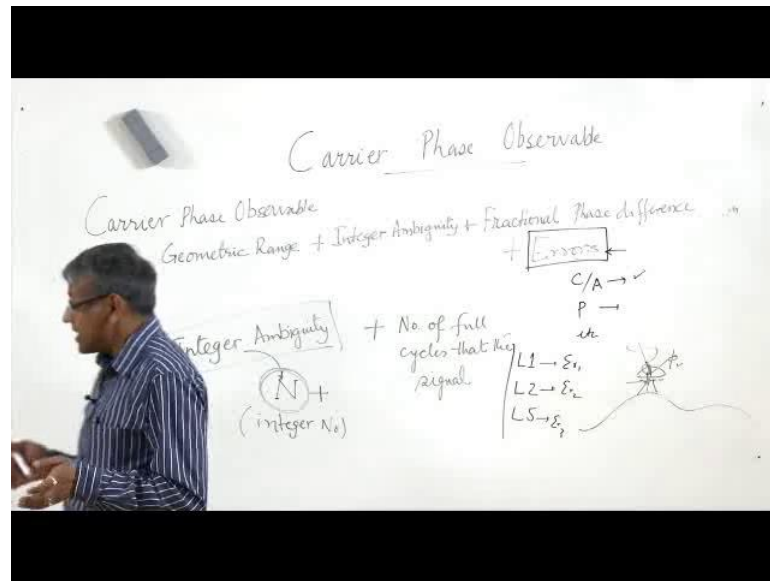 Carrier Phase Observable
Carrier Phase Observable
Geometric Range + Integer Ambiguity + Fractional Phase difference
+ Errors ←
C/A → ✓
P →
Integer Ambiguity + No. of full
cycles that the
signal
N +
(integer No)
L1 → Er1
L2 → Er2
L5 → Er3